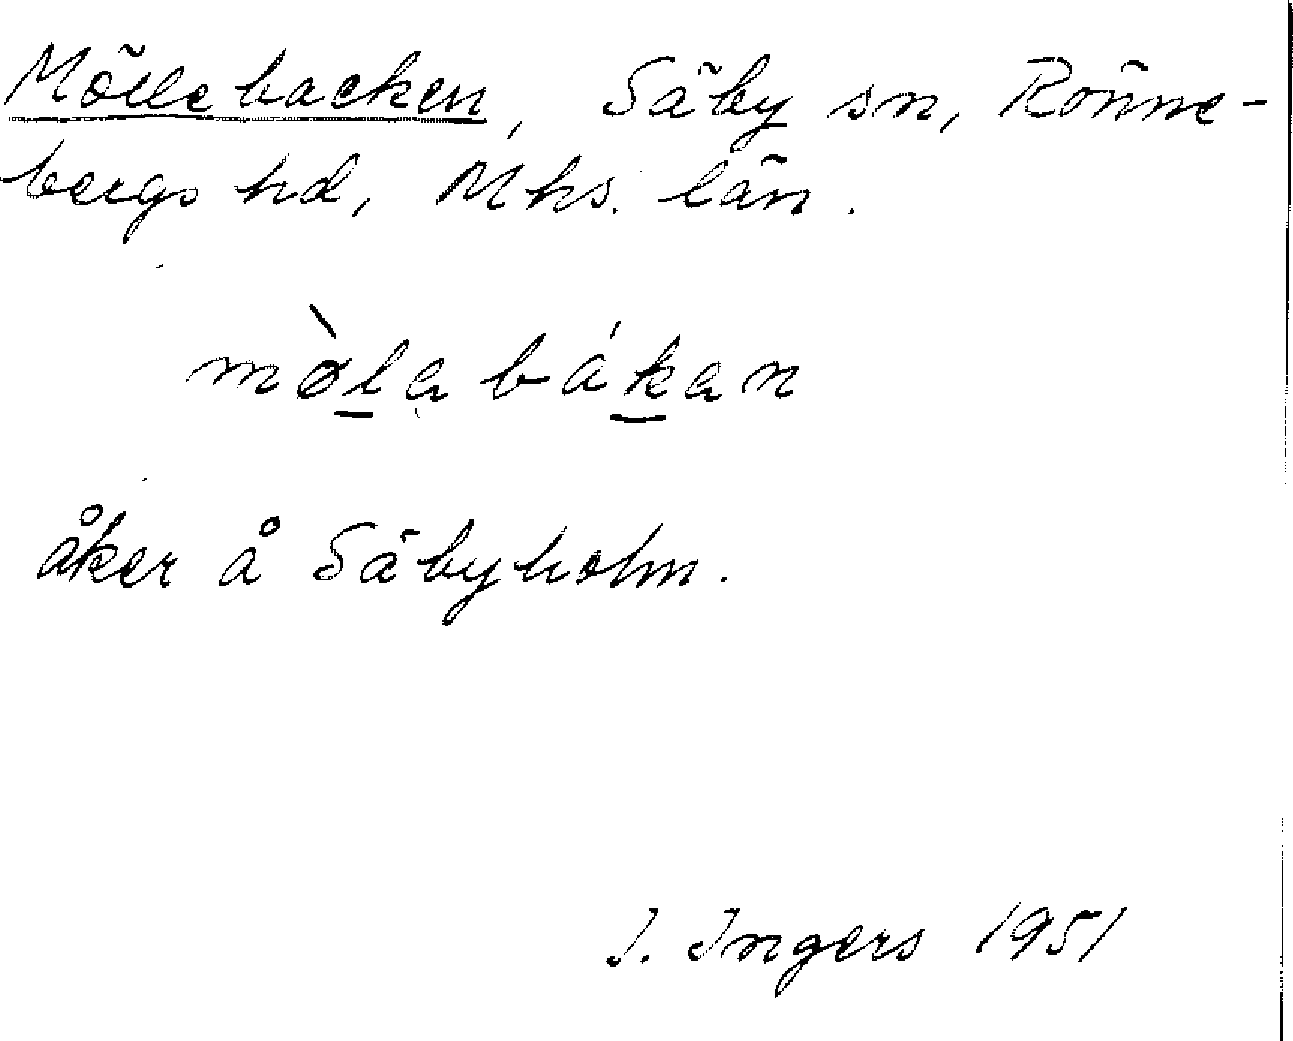 Möllebacken, Säby sn, Rönne-
bergs hd, Mhs. län.
mø̀la bákan
åker å Säbyholm.
I. Ingers 1951